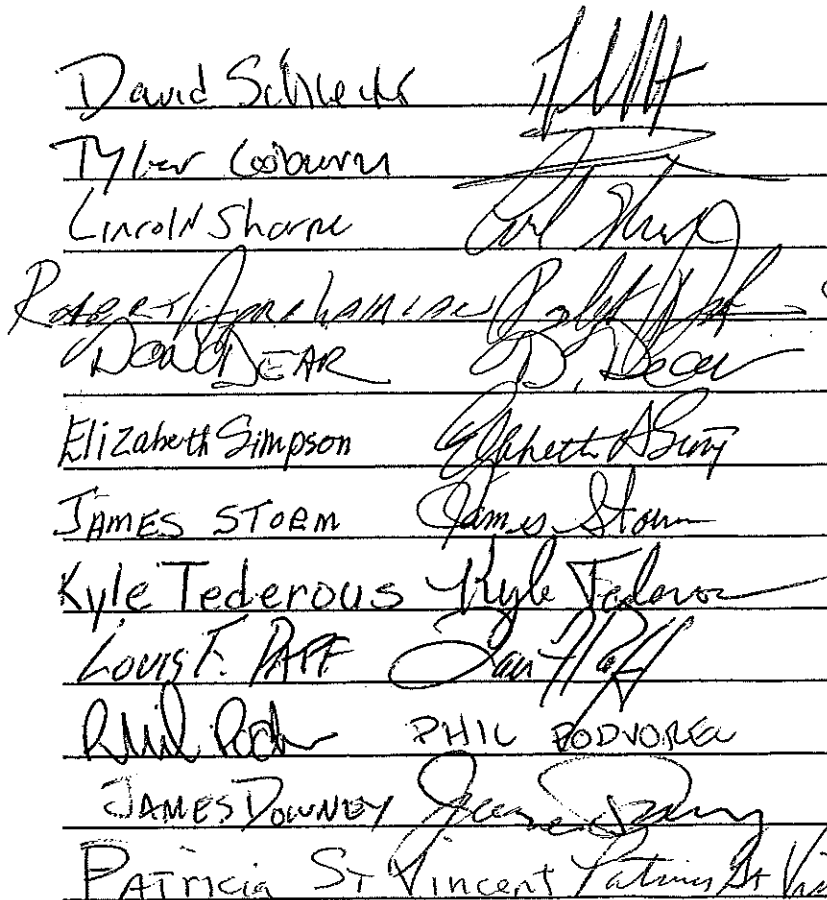 David
Tyler Coburn
Lincoln Sharpe
Robert
DON DEAR D. Dear
Elizabeth Simpson Elizabeth A Simp
JAMES STORM James Storm
Kyle Tederous Kyle Tederous
LOUIS F. PAFF Lou F Paff
Phil PHIL PODVOREC
JAMES DOWNEY James Downey
PATRICIA ST Vincent Patricia St Vin